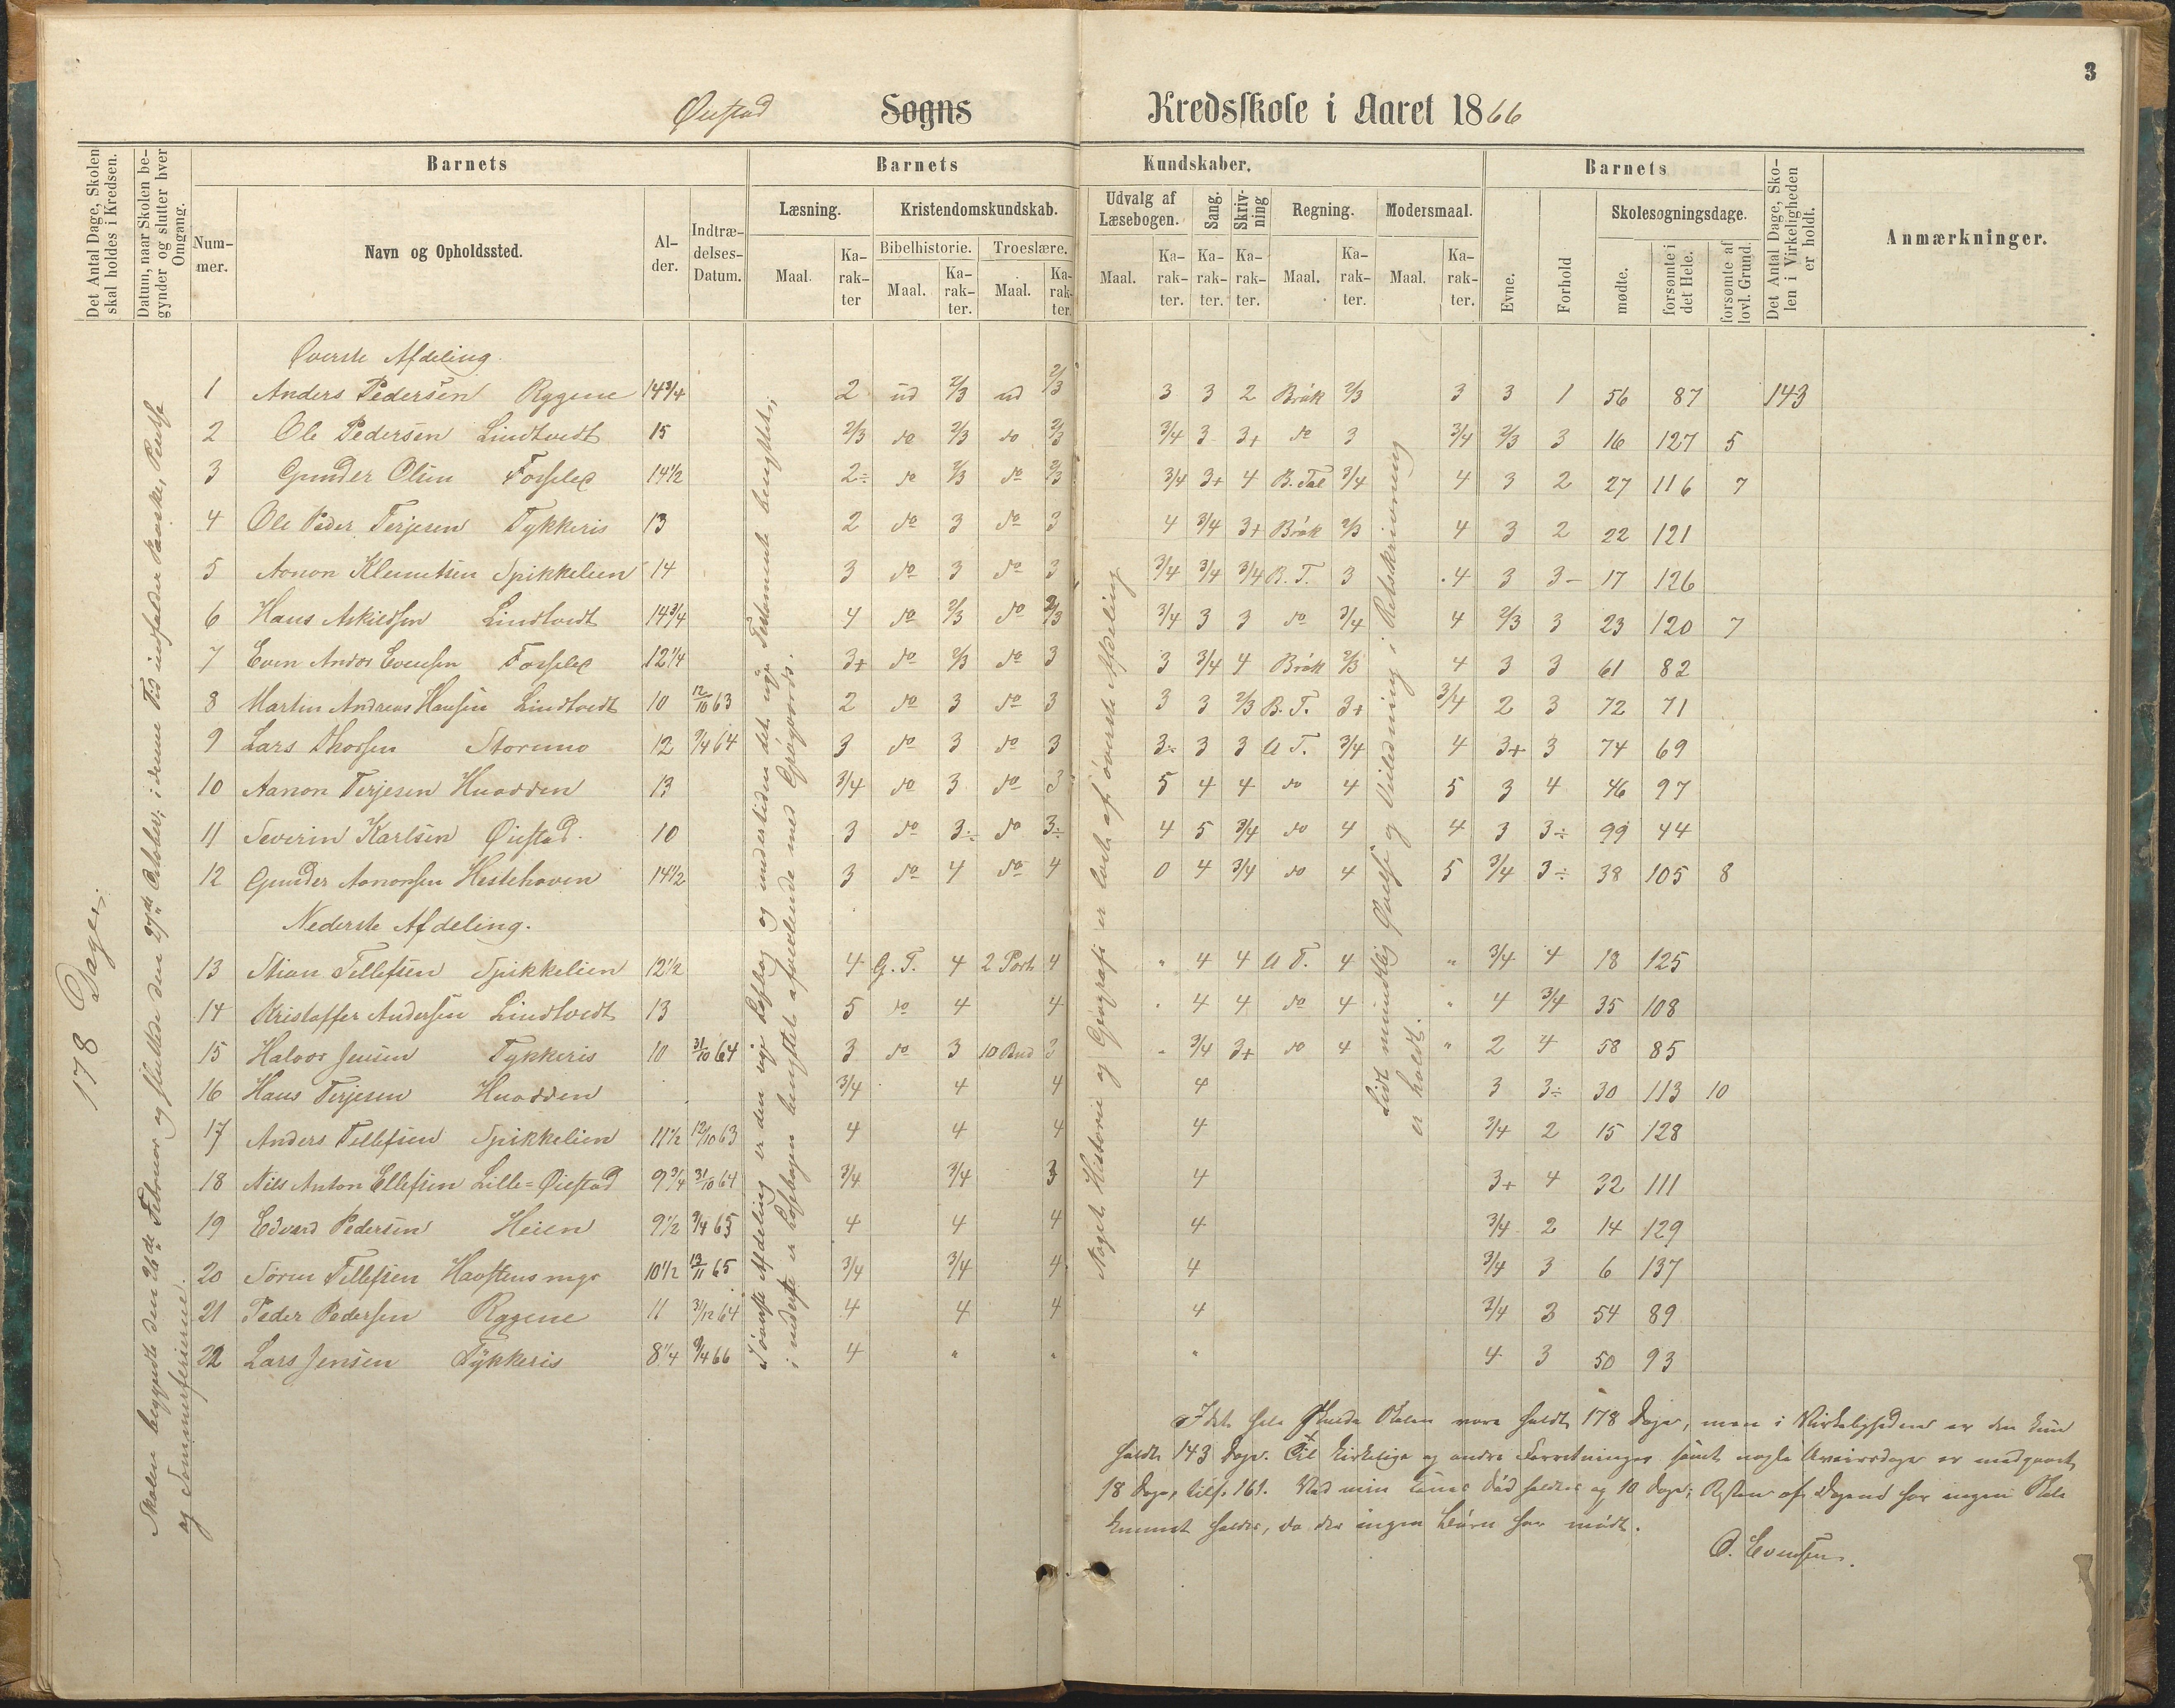 3
Øiestad Sogns Kredsskole i Aaret 1866
Det Antal Dage, Skolen skal holdes i Kredsen.
Datum, naar Skolen begynder og slutter hver Omgang.
Barnets
Barnets
Kundskaber.
Barnets
Det Antal Dage, Skolen i Virkeligheden er holdt.
Anmærkninger.
Nummer.
Navn og Opholdssted.
Alder.
Indtrædelses-Datum.
Læsning.
Kristendomskundskab.
Udvalg af Læsebogen.
Sang.
Skrivning
Regning.
Modersmaal.
Evne.
Forhold
Skolesøgningsdage.
Bibelhistorie.
Troeslære.
Maal.
Karakter
Maal.
Karakter.
Maal.
Karakter.
Maal.
Karakter.
Karakter.
Karakter.
Maal.
Karakter.
Maal.
Karakter.
mødte.
forsømte i det Hele.
forsømte af lovl. Grund.
178 Dage.
Skolen begyndte den 26de Februar og sluttede den 27de Oktober; i denne Tid indfalder Paaske, Pintse
og Sommerferierne.
Øverste Afdeling.
1 Anders Pedersen Rygene 14 3/4 2 ud 2/3 ud 2/3 3 3 2 Brøk 2/3 3 3 1 56 87 143
2 Ole Pedersen Lindtvedt 15 2/3 do 2/3 do 2/3 3/4 3 3+ do 3 3/4 2/3 3 16 127 5
3 Gunder Olsen Fosseled 14 1/2 2÷ do 2/3 do 2/3 3/4 3+ 4 B. Tal 3/4 4 3 2 27 116 7
4 Ole Peder Terjesen Tykkeris 13 2 do 3 do 3 4 3/4 3+ Brøk 2/3 4 3 2 22 121
5 Aanon Klemetsen Spikkelien 14 3 do 3 do 3 3/4 3/4 3/4 B. T. 3 4 3 3- 17 126
6 Hans Askildsen Lindtvedt 14 3/4 4 do 2/3 do 2/3 3/4 3 3 do 3/4 4 2/3 3 23 120 7
7 Even Andos Evensen Fosseled 12 1/4 3+ do 2/3 do 3 3 3/4 4 Brøk 2/3 4 3 3 61 82
8 Martin Andreas Hansen Lindtvedt 10 12/10 63 2 do 3 do 3 3 3 2/3 B. T. 3+ 3/4 2 3 72 71
9 Lars Thorsen Stormo 12 9/4 64 3 do 3 do 3 3÷ 3 3 U T. 3/4 4 3+ 3 74 69
10 Aanon Terjesen Hnodden 13 3/4 do 3 do 3 5 4 4 do 4 5 3 4 46 97
11 Severin Karlsen Øiestad. 10 3 do 3÷ do 3÷ 4 5 3/4 do 4 4 3 3÷ 99 44
12 Gunder Aanonsen Hestehaven 14 1/2 3 do 4 do 4 0 4 3/4 do 4 5 3/4 3÷ 38 105 8
Nederste Afdeling.
13 Stian Tellefsen Spikkelien 12 1/2 4 G. T. 4 2 Part 4 " 4 4 U T. 4 " 3/4 4 18 125
14 Kristoffer Andersen Lindtvedt 13 5 do 4 4 " 4 4 do 4 " 4 3/4 35 108
15 Halvor Jensen Tykkeris 10 31/10 64 3 do 3 10 Bud 3 " 3/4 3+ do 4 " 2 4 58 85
16 Hans Terjesen Hnodden 3/4 4 4 4 3 3÷ 30 113 10
17 Anders Tellefsen Spikkelien 11 1/2 12/10 63 4 4 4 4 3/4 2 15 128
18 Nils Anton Ellefsen Lille-Øiestad 9 3/4 31/10 64 3/4 3/4 3 4 3+ 4 32 111
19 Edvard Pedersen Heien 9 1/2 9/4 65 4 4 4 4 3/4 2 14 129
20 Søren Tellefsen 10 1/2 13/11 65 3/4 3/4 4 4 3/4 3 6 137
21 Peder Pedersen Rygene 11 31/12 64 4 4 4 4 3/4 3 54 89
22 Lars Jensen Tykkeris 8 1/4 9/4 66 4 " " " 4 3 50 93
I øverste Afdeling er den nye Læsebog og undertiden det nye Testamente benyttet;
i nederste er Læsebogen benyttet afvexlende med
Noget Historie og Geografi er læst af øverste Afdeling
Lidt mundtlig Øvelse og Veiledning i Retskrivning
er holdt.
I det hele skulde Skolen være holdt 178 Dage, men i Virkeligheden er den kun
holdt 143 Dage. Til kirkelige og andre Forretninger samt nogle Uveirsdage er medgaaet
18 Dage, tils. 161. Ved min Død 10 Dage; Resten af Dagene har ingen Skole
kunnet holdes, da der ingen Børn har mødt.
O. Evensen.